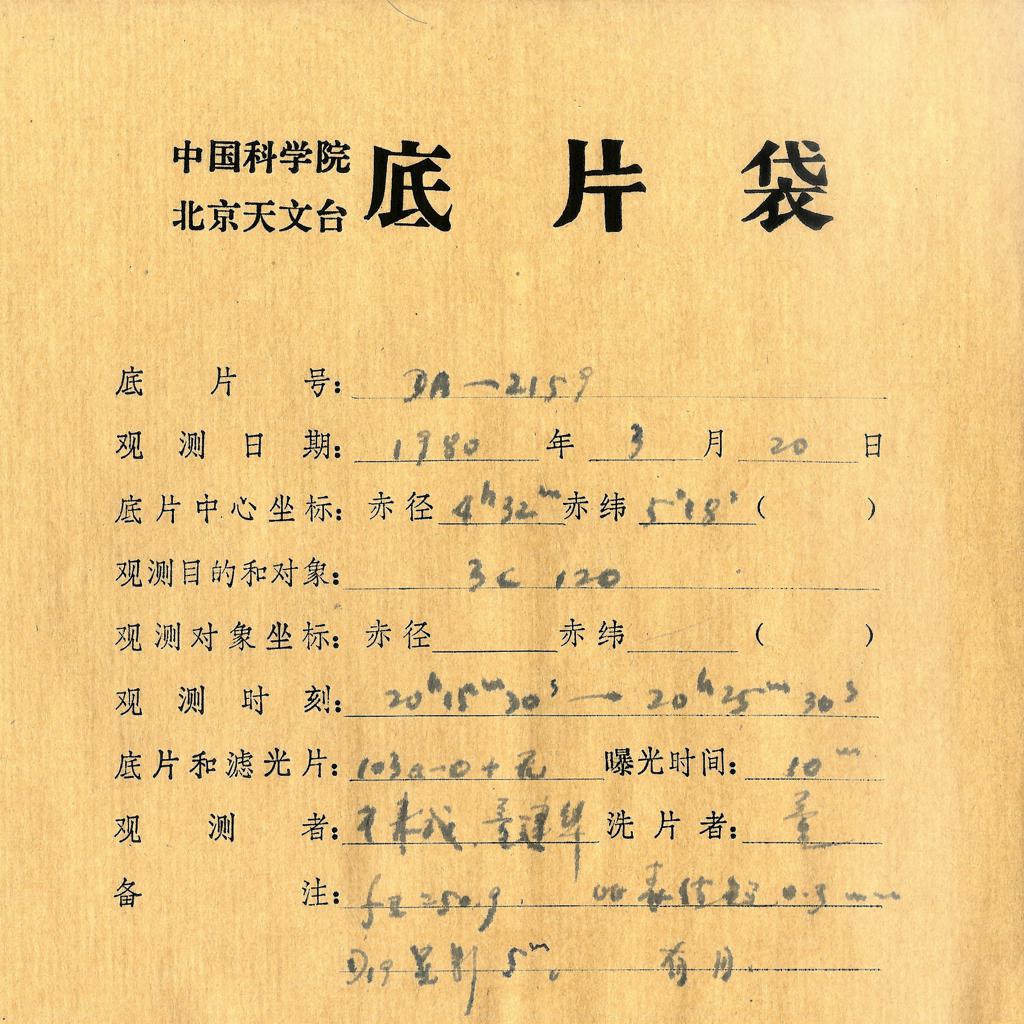 中国科学院
北京天文台
底片袋
底片号: DA-2159
观测日期: 1980 年 3 月 20 日
底片中心坐标: 赤径 4h32m 赤纬 5°18' ( )
观测目的和对象: 3C 120
观测对象坐标: 赤径 赤纬 ( )
观测时刻: 20h15m30s — 20h25m30s
底片和滤光片: 103a-O+无 曝光时间: 10m
观测者: 洗片者: 董
备注: 0.3mm
D19 显影 5m. 有月.